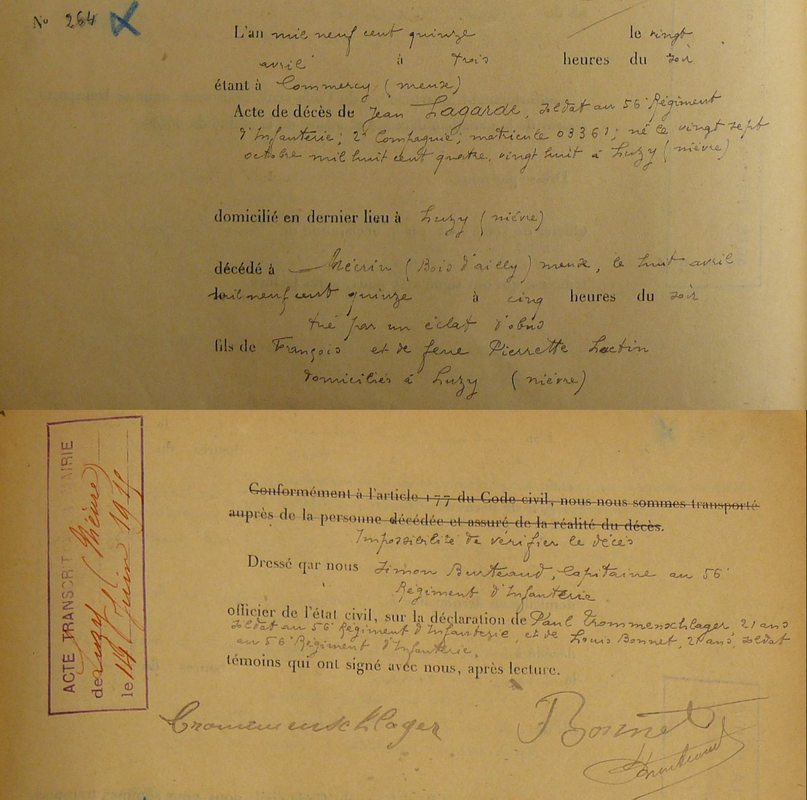 N° 264
L'an mil neuf cent quinze le vingt
avril à trois heures du soir
étant à Commercy (meuse)
Acte de décès de Jean Lagarde, soldat au 56e Régiment
d'Infanterie; 2e Compagnie, matricule 03361; né le vingt sept
octobre mil huit cent quatre vingt huit à Luzy (nièvre)
domicilié en dernier lieu à Luzy (nièvre)
décédé à Mécrin (Bois d'ailly) meuse, le huit avril
mil neuf cent quinze à cinq heures du soir
tué par un éclat d'obus
fils de François et de feue Pierrette Lactin
domiciliés à Luzy (nièvre)
ACTE TRANSCRIT MAIRIE
de Luzy (Nièvre)
le 14 Juin
Conformément à l'article 177 du Code civil, nous nous sommes transporté
auprès de la personne décédée et assuré de la réalité du décès.
Impossibilité de vérifier le décès
Dressé par nous Simon Burteaud, Capitaine au 56e
Régiment d'Infanterie
officier de l'état civil, sur la déclaration de Paul Trommenschlager 21 ans
soldat au 56e Régiment d'Infanterie, et de Louis Bonnet, 21 ans, soldat
au 56e Régiment d'Infanterie.
témoins qui ont signé avec nous, après lecture.
Trommenschlager Bonnet